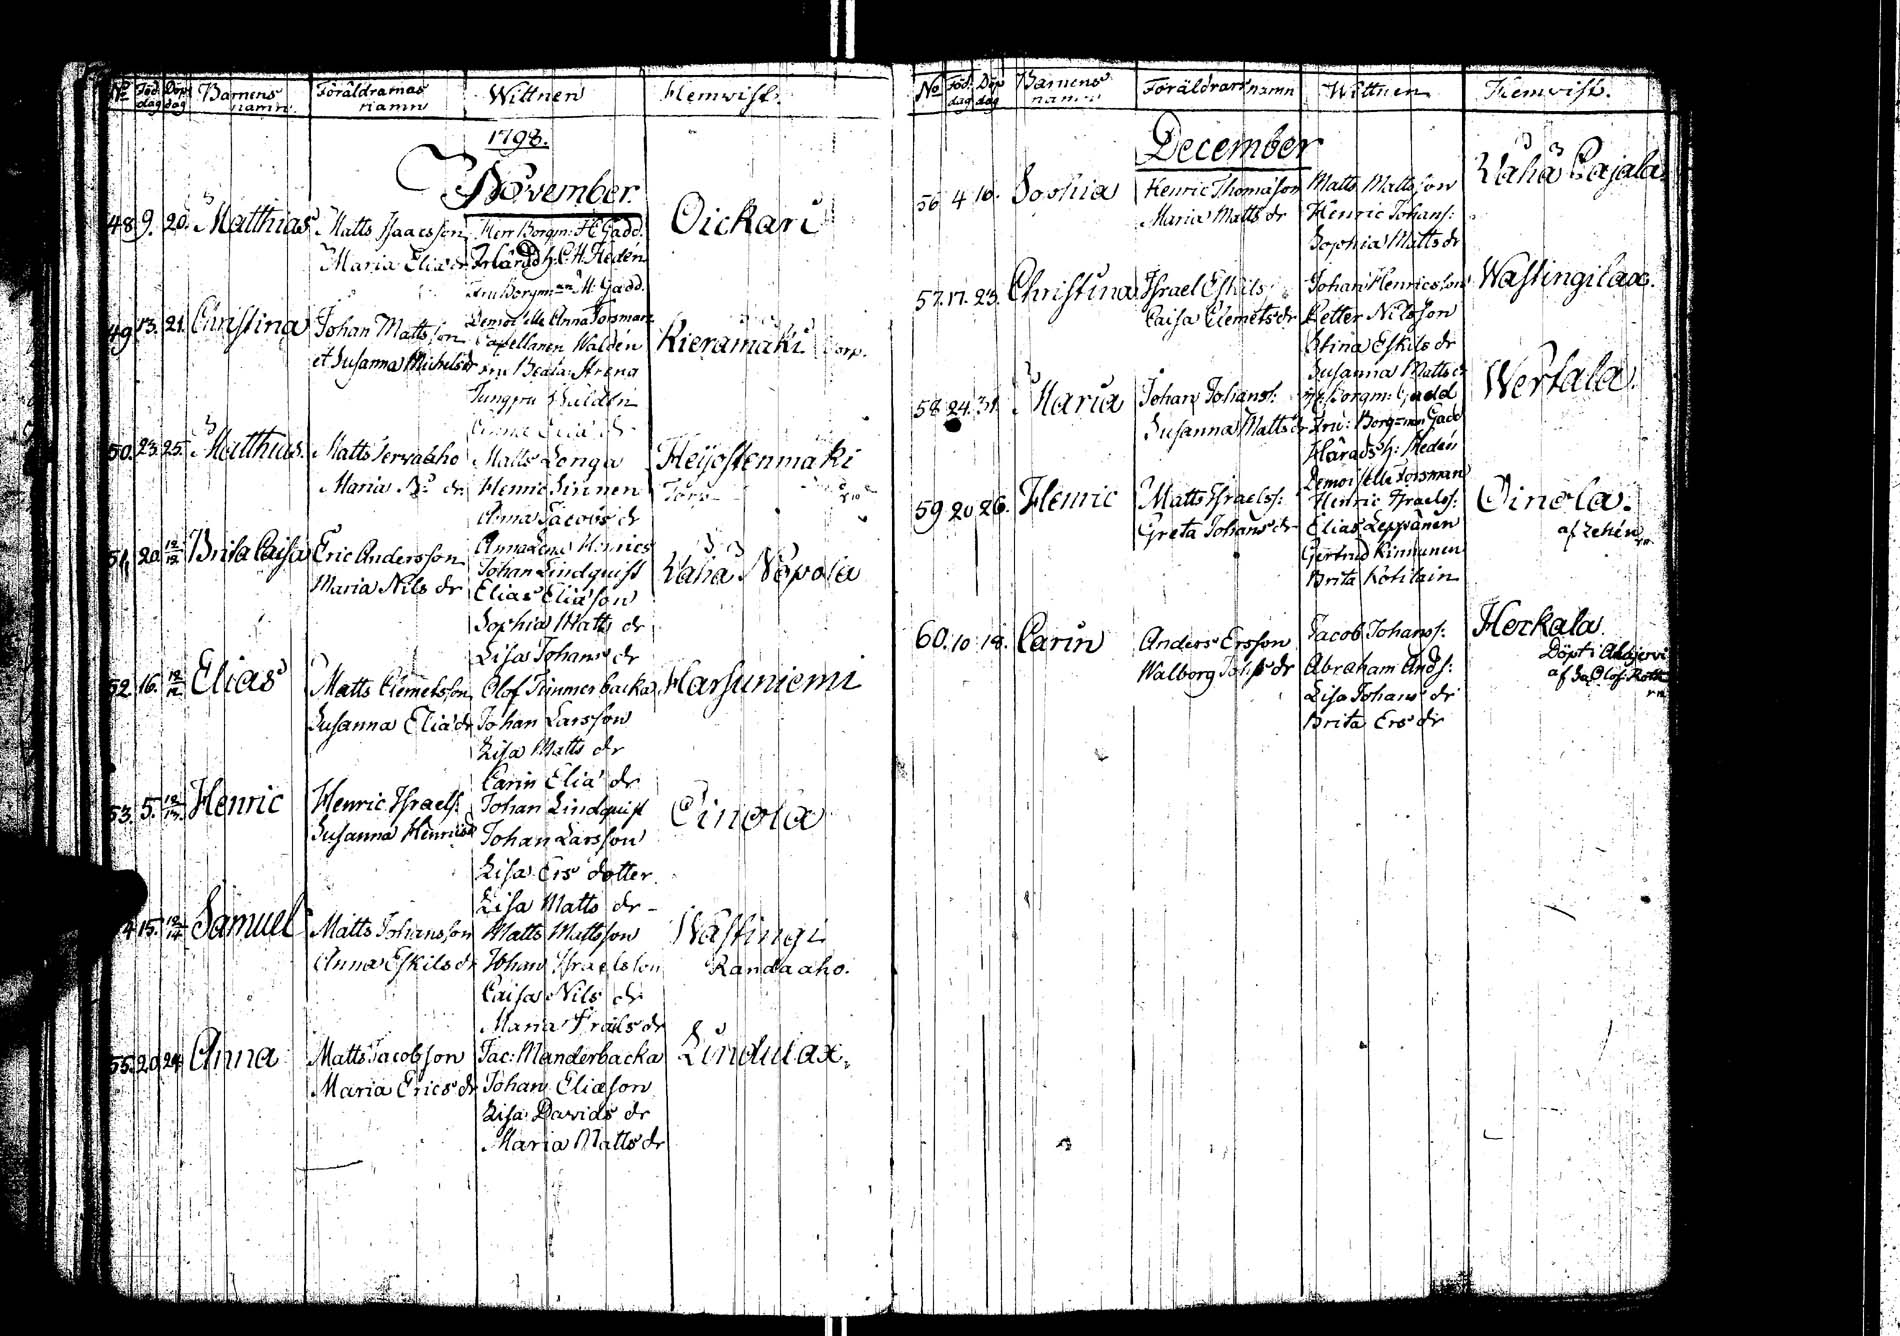 No Föd. dag Döp. dag Barnens namn Föräldrarnas namn Wittnen Hemvist.
1798.
November.
48 9. 20. Matthias Matts Isaacsson Herr Borgm: H Gadd. Oickari
Maria Eliæ dr Härads h: C.H. Hedén
Fru Borgm:an M. Gadd.
Demoiselle Anna Forsman
49 13. 21. Christina Johan Mattsson Capellanen Waldén Kieramäki Torp.
et Susanna Michels dr Fru Beata
Jungfru Waldén
Anna Eliæ dr
50. 23. 25. Matthias. Matts Matts Longa Heijostenmäki
Maria dr Henric Sirinen Torp
Anna Jacobs dr
Anna Lena Henrics
51, 20. 12/12. Brita Caisa Eric Andersson Johan Lindquist Wähä Nopola
Maria Nils dr Elias Eliæson
Sophia Matts dr
Lisa Johans dr
52. 16. 12/12. Elias Matts Clemetsson Olof Timmerbacka Harsuniemi
Susanna Eliæ dr Johan Larsson
Lisa Matts dr
Carin Eliæ dr
53. 5. 12/13. Henric Henric Israels: Johan Lindquist Oinola
Susanna Henrics Johan Larsson
Lisa Ers dotter.
Lisa Matts dr
4 15. 12/14 Samuel Matts Johansson Matts Mattsson Wästingi
Anna Eskils dr Johan Israelsson Randaaho.
Caisa Nils dr
Maria dr
55. 20. 24. Anna Matts Jacobson Jac: Manderbacka Lindulax.
Maria Erics dr Johan Eliæson
Lisa Davids dr
Maria Matts dr
No Föd. dag Döp dag Barnens namn Föräldrars namn Wittnen Hemvist.
December
56 4 10. Sophia Henric Thomasson Matts Mattsson Wähä Cajala.
Maria Matts dr Henric Johans:
Sophia Matts dr
57. 17. 23. Christina Israel Eskils Johan Henricsson Wästingilax.
Caisa Clemets dr Petter Nilsson
Stina Eskils dr
Susanna Matts dr
58 24. 31. Maria Johan Johans: Borgm: Gadd Wertala.
Susanna Matts dr Fru: Borg=man Gadd
Härads h: Hedén
Demoiselle Forsman
59 20 26. Henric Matts Israels: Henric Israels: Oinola.
Greta Johans dr Elias Leppänen af
Gertrud Kinnunen
Brita
60. 10 18. Carin Anders Ersson Jacob Johans: Herkala.
Walborg Johs dr Abraham Ands: Döpt i
Lisa Johans dr af
Brita Ers dr